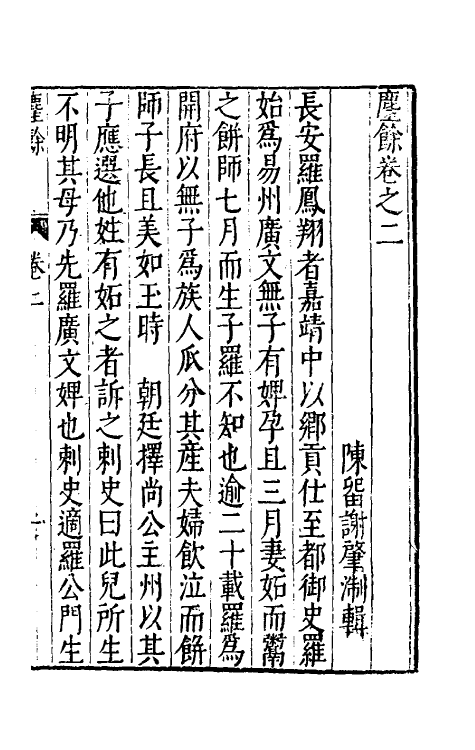 麈餘卷之二
陳留謝肇淛輯
長安羅鳳翔者嘉靖中以鄉貢仕至都御史羅
始爲易州廣文無子有婢孕且三月妻妬而鬻
之餅師七月而生子羅不知也逾二十載羅爲
開府以無子爲族人瓜分其産夫婦飲泣而餅
師子長且美如玉時 朝廷擇尚公主州以其
子應選他姓有妬之者訴之刺史曰此兒所生
不明其母乃先羅廣文婢也刺史適羅公門生
麈餘 卷二 一